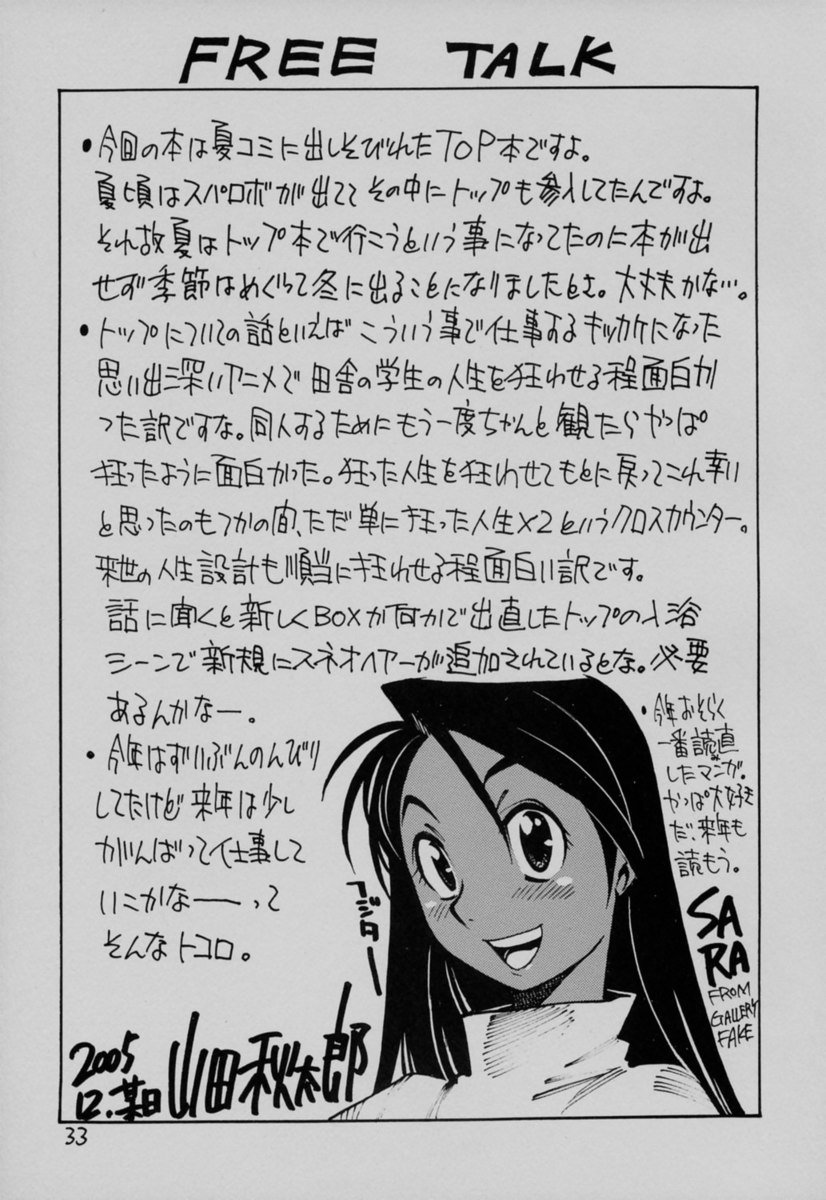 FREE TALK
・今回の本は夏コミに出しそびれたTOP本ですよ。
夏頃はスパロボが出ててその中にトップも参入してたんですよ。
それ故夏はトップ本で行こうという事になってたのに本が出
せず季節はめぐって冬に出ることになりましたとさ。大丈夫かな…。
・トップについての話といえばこういう事で仕事するキッカケになった
思い出深いアニメで田舎の学生の人生を狂わせる程面白か
った訳ですな。同人するためにもう一度ちゃんと観たらやっぱ
狂ったように面白かった。狂った人生を狂わせてもとに戻ってこれ幸い
と思ったのもつかの間、ただ単に狂った人生×2というクロスカウンター。
来世の人生設計も順当に狂わせる程面白い訳です。
話に聞くと新しくBOXか何かで出直したトップの入浴
シーンで新規にスネオヘアーが追加されているとな。必要
あるんかなー。
・今年はずいぶんのんびり
してたけど来年は少し
がんばって仕事して
いこかなーーって
そんなトコロ。
・今年おそらく
一番読み直
したマンガ。
やっぱ大好き
だ。来年も
読もう。
SA
RA
FROM
GALLERY
FAKE
フジター
2005
12.某日 山田秋太郎
33